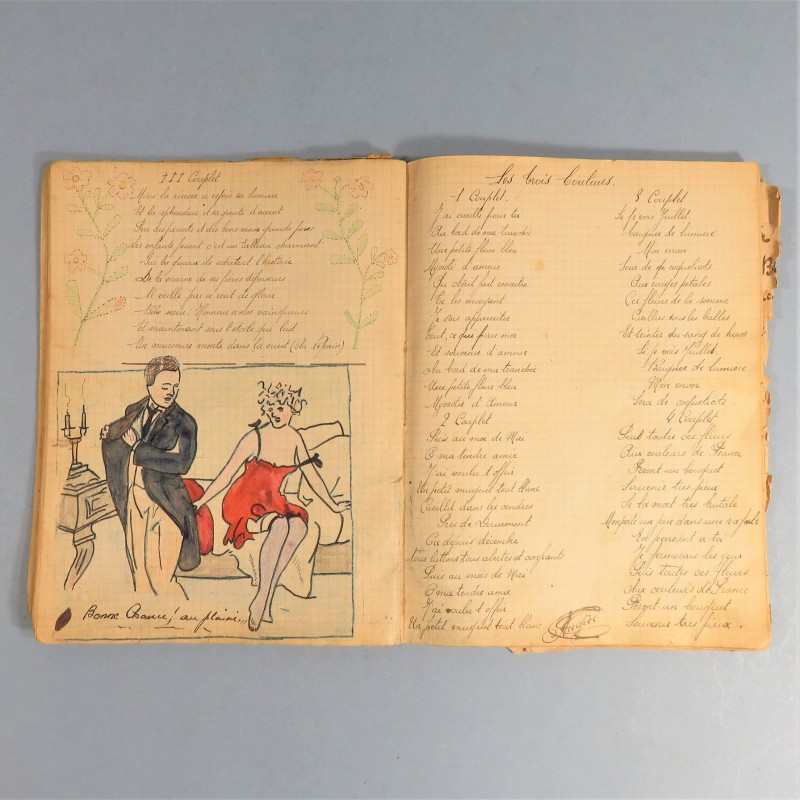 III Couplet
Mais la rivière a repris sa lumière
Et la splendeur d'avant
Sur
Les enfants c'est un tableau charmant
l'histoire
De la marne de ses fiers défenseurs
pas a tant de gloire
Honneur a los vainqueurs
Et maintenant sous l'étoile qui luit
Un murmure monte dans la nuit (au refrain)
Bonne Chance! au plaisir...
Les trois Couleurs.
1 Couplet.
J'ai cueillie pour toi
Au bord de ma tranchée
Une petite fleur bleu
Myosotis d'amour
En te l'envoyant
Je vais
tout ce que
Et souvenir d'amour
Au bord de ma tranchée
Une petite fleur bleu
Myosotis d'Amour
2 Couplet
Puis au moi de Mai
O ma tendre amie
J'ai voulu t'offrir
Un petit muguet tout blanc
Cueillit dans les cendres
Près de Douaumont
Ou depuis décembre
Nous luttons tous alertes et confiants
Puis au mois de Mai
O ma tendre amie
J'ai voulu t'offrir
Un petit muguet tout blanc
3 Couplet
Si Je vois Juillet
Baignée de lumière
Mon envoi
Sera de coquelicots
Aux rouges pétales
Ces fleurs de la somme
Cueillies sous les balles
Et teintes du sang de heros
Si Je vois Juillet
Baignée de lumière
Mon envoi
Sera de coquelicots
4 Couplet
Puis toutes ces fleurs
Aux couleurs de France
Feront un bouquet
Souvenir tres pieux
Si la mort tres brutale
M'emporte un peu dans une rafale
En pensant a toi
Je fermerais les yeux
Puis toutes ces fleurs
Aux couleurs de France
Feront un bouquet
Souvenir tres pieux.